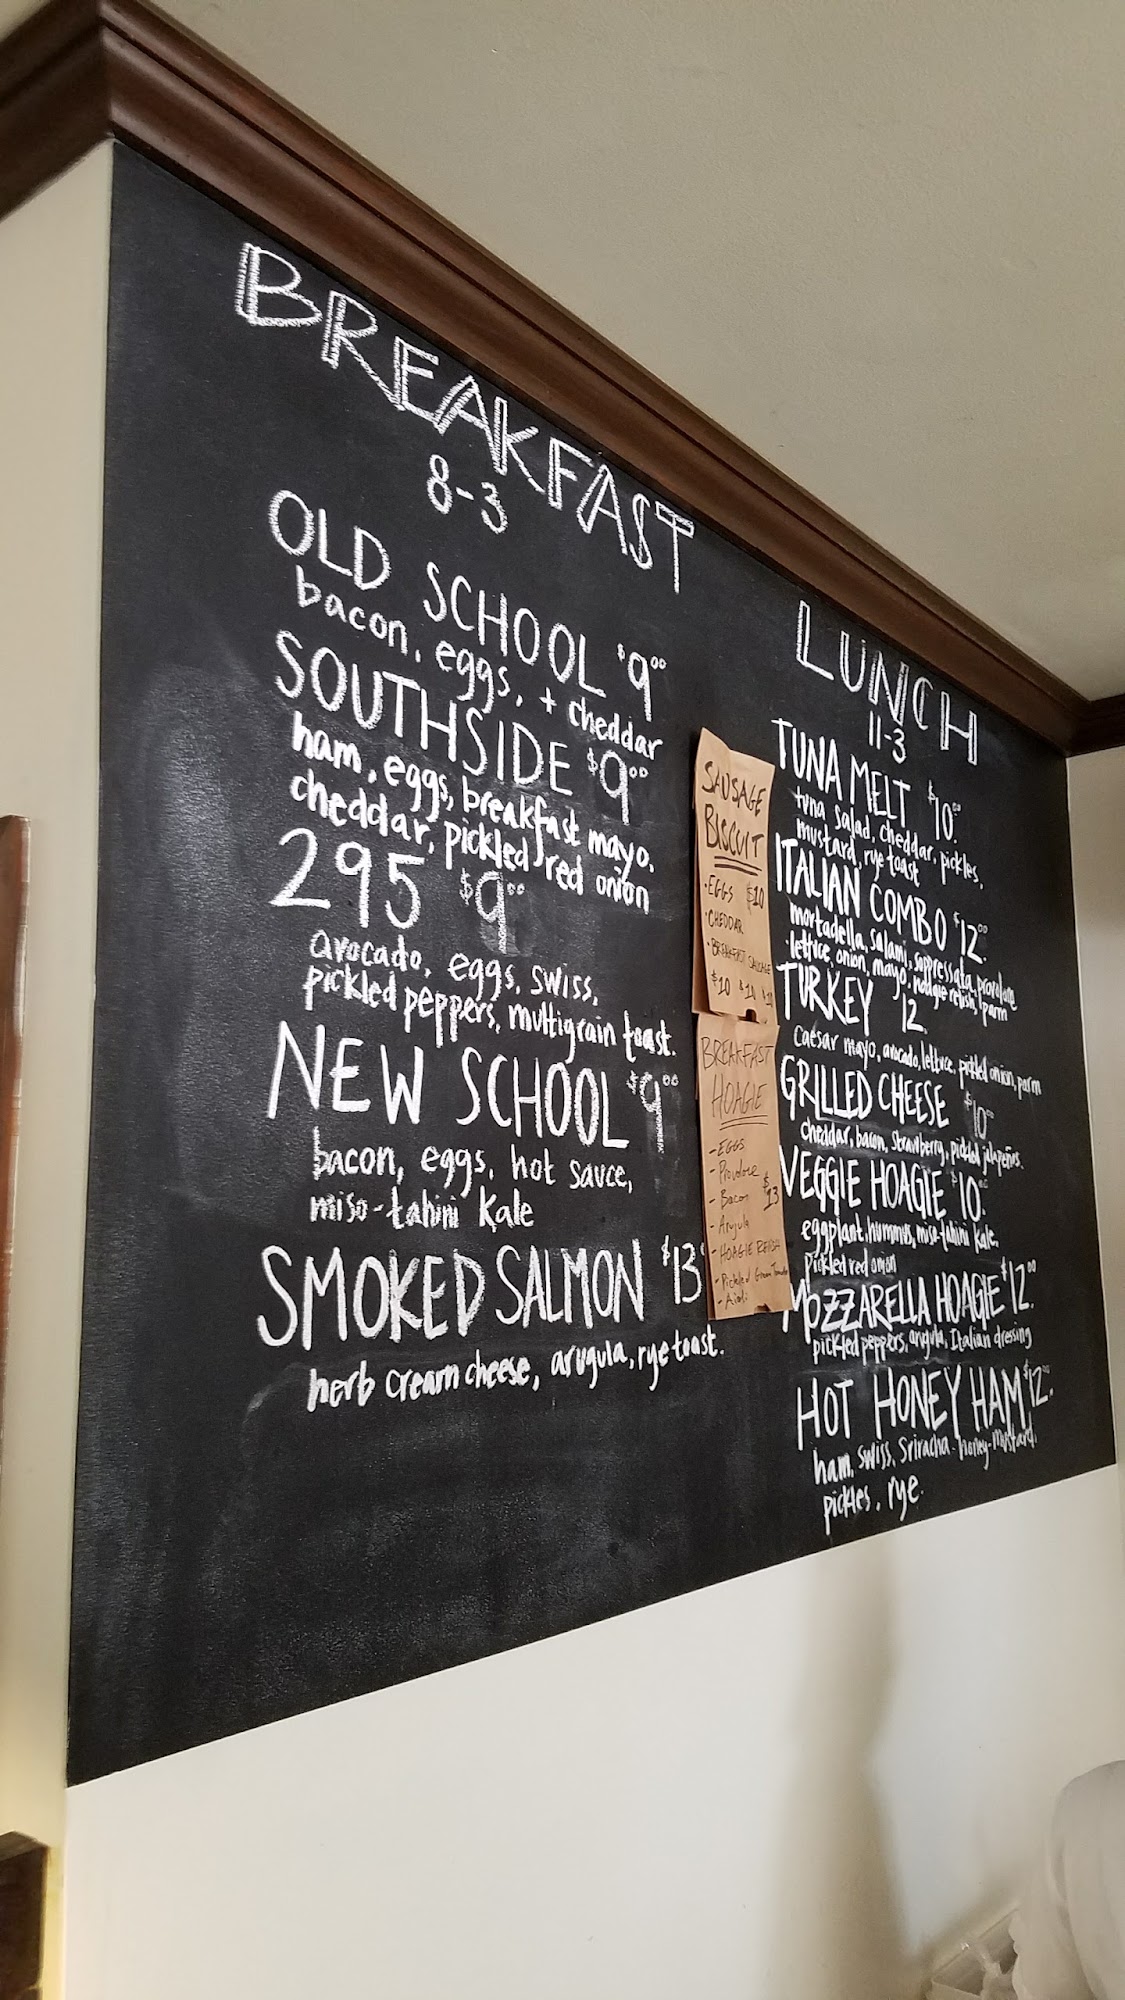 BREAKFAST
8-3
OLD SCHOOL $9.00
bacon, eggs, + cheddar
SOUTHSIDE $9.00
ham, eggs, breakfast mayo,
cheddar, pickled red onion
295 $9.00
avocado, eggs, swiss,
pickled peppers, multigrain toast.
NEW SCHOOL $9.00
bacon, eggs, hot sauce,
miso-tahini kale
SMOKED SALMON $13
herb cream cheese, arugula, rye toast.
SAUSAGE
BISCUIT
• EGGS $10
• CHEDDAR
• BREAKFAST SAUSAGE
$10 $10 $10
BREAKFAST
HOAGIE
- EGGS
- Provolone
- Bacon $13
- Arugula
- HOAGIE RELISH
- Pickled Green Tomato
- Aioli
LUNCH
11-3
TUNA MELT $10.00
tuna salad, cheddar, pickles,
mustard, rye toast
ITALIAN COMBO $12.00
mortadella, salami, soppressata, provolone
lettuce, onion, mayo, hoagie relish, parm
TURKEY 12.
Caesar mayo, avocado, lettuce, pickled onion, parm
GRILLED CHEESE $10.00
cheddar, bacon, strawberry, pickled jalapeños.
VEGGIE HOAGIE $10.00
eggplant, hummus, miso-tahini kale,
pickled red onion
MOZZARELLA HOAGIE $12.00
pickled peppers, arugula, Italian dressing
HOT HONEY HAM $12.00
ham, swiss, Sriracha-honey-mustard,
pickles, rye.